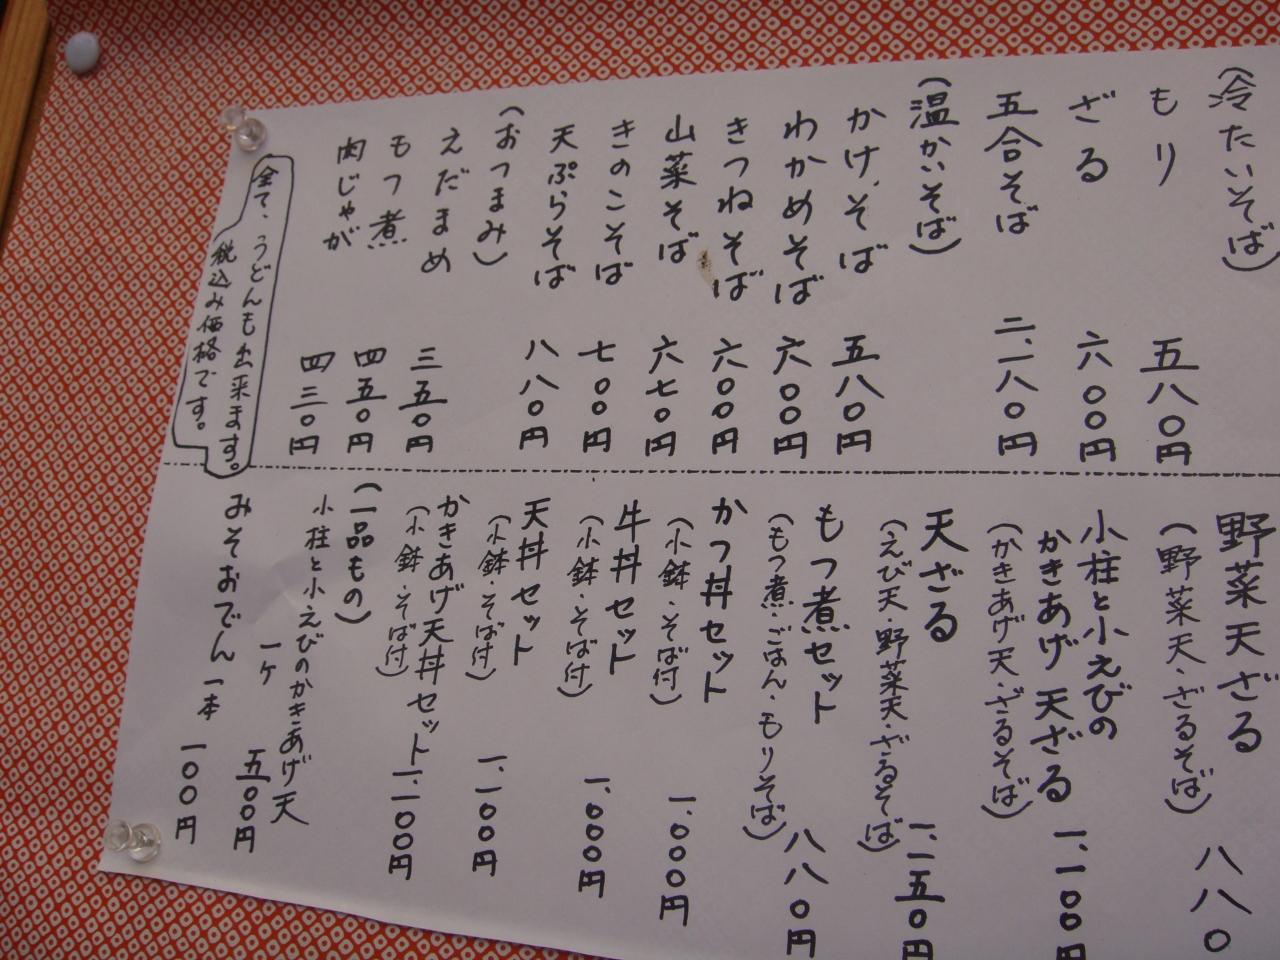 (冷たいそば)
もり 五八〇円
ざる 六〇〇円
五合そば 二、一八〇円
(温かいそば)
かけそば 五八〇円
わかめそば 六〇〇円
きつねそば 六〇〇円
山菜そば 六七〇円
きのこそば 七〇〇円
天ぷらそば 八八〇円
(おつまみ)
えだまめ 三五〇円
もつ煮 四五〇円
肉じゃが 四三〇円
全て、うどんも出来ます。
税込み価格です。
野菜天ざる 八八〇
(野菜天・ざるそば)
小柱と小えびの
かきあげ天ざる 一、一〇〇円
(かきあげ天・ざるそば)
天ざる 一、一五〇円
(えび天・野菜天・ざるそば)
もつ煮セット 八八〇円
(もつ煮・ごはん・もりそば)
かつ丼セット 一、〇〇〇円
(小鉢・そば付)
牛丼セット 一、〇〇〇円
(小鉢・そば付)
天丼セット 一、一〇〇円
(小鉢・そば付)
かきあげ天丼セット 一、一〇〇円
(小鉢・そば付)
(一品もの)
小柱と小えびのかきあげ天
一ヶ 五〇〇円
みそおでん一本 一〇〇円